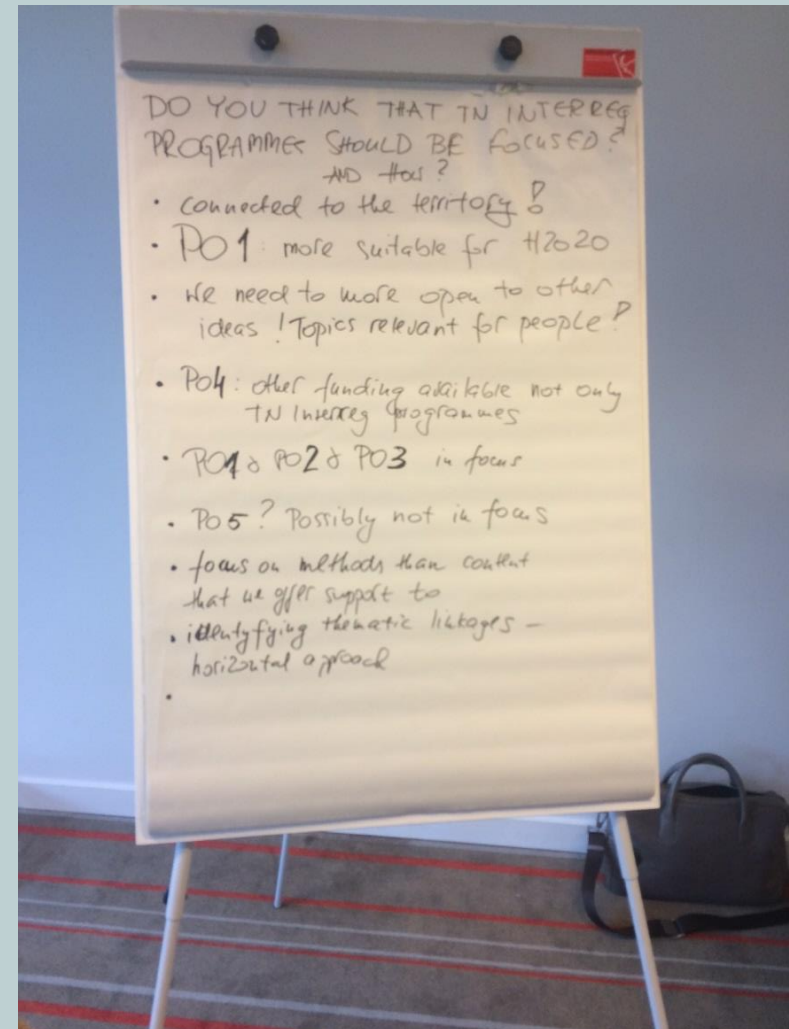 DO YOU THINK THAT TN INTERREG
PROGRAMMES SHOULD BE FOCUSED?
AND HOW?
• connected to the territory!
• PO1: more suitable for H2020
• we need to more open to other
ideas! Topics relevant for people!
• PO4: other funding available not only
TN Interreg programmes
• PO1 & PO2 & PO3 in focus
• PO5? Possibly not in focus
• focus on methods than content
that we offer support to
• identyfying thematic linkages –
horizontal aproach
•